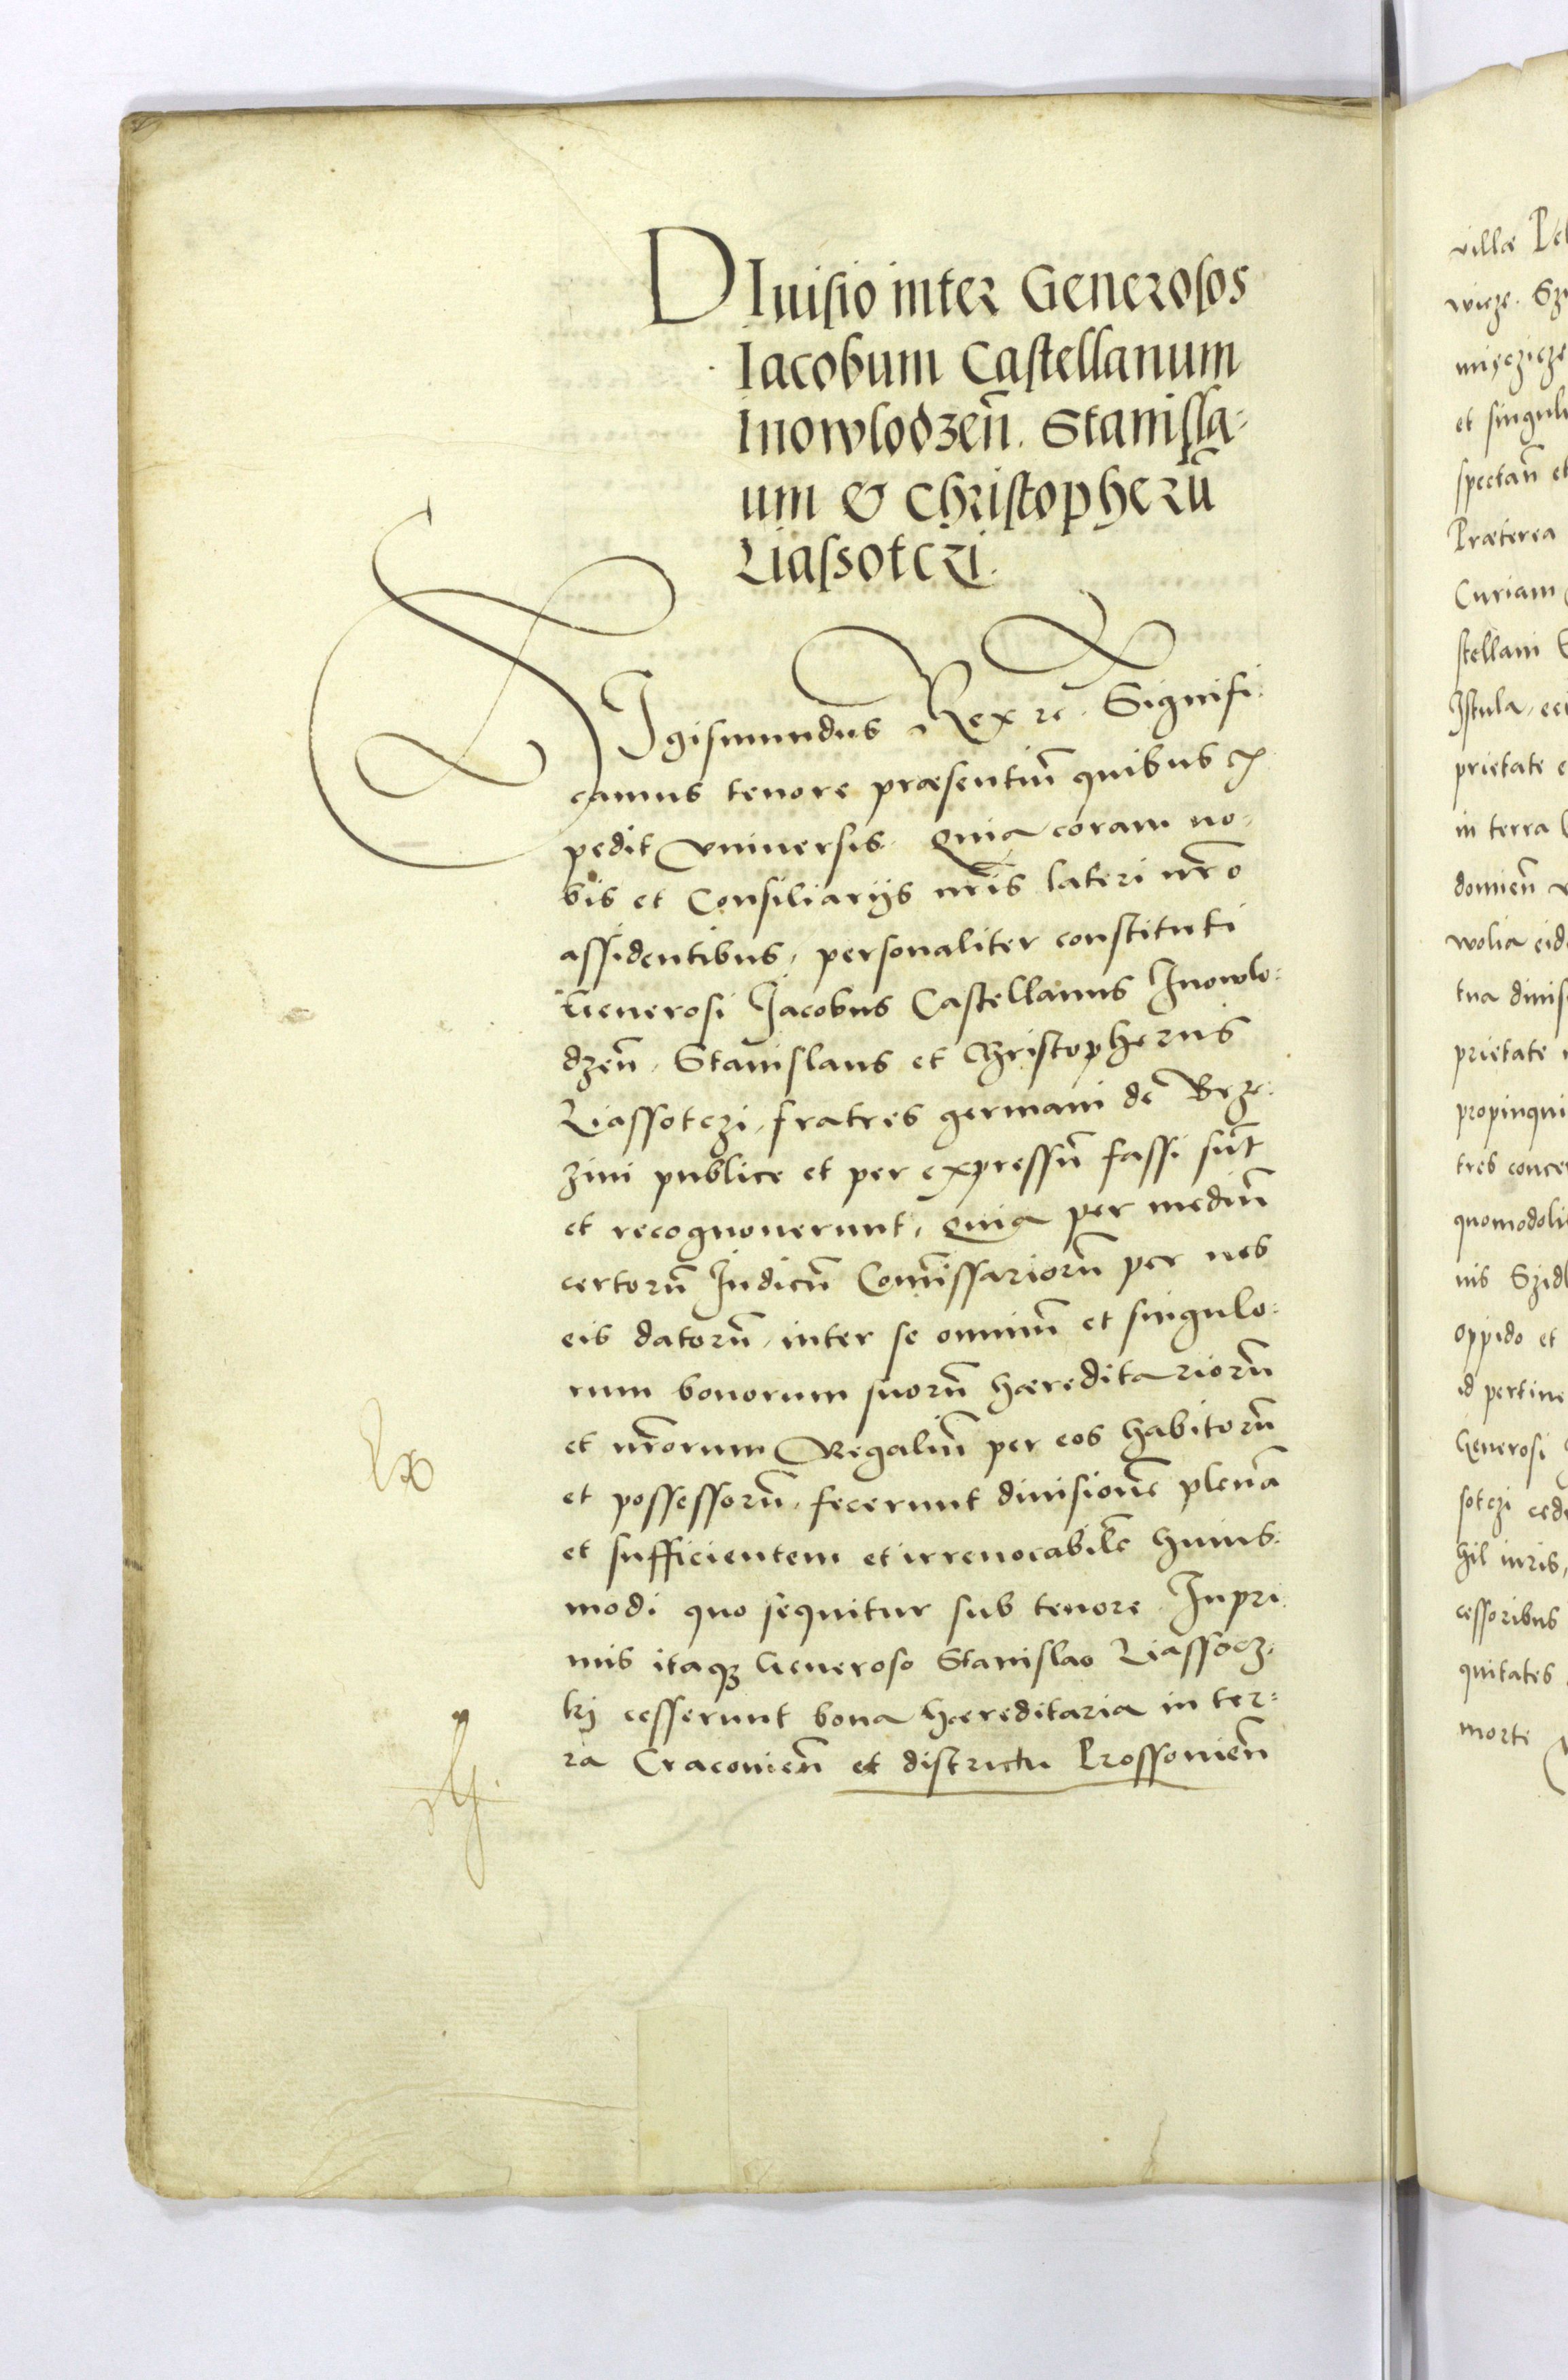 DIuisio inter Generosos
Iacobum Castellanum
Inowlodzen̄. Stanisla-
um & Christopherū
Liassotczi.
SIgismundus Rex rc̄. Signifi-
camus tenore præsentiū quibus ex
pedit vniuersis. Quia coram no-
bis et Consiliarijs nr̄is lateri nr̄o
assidentibus, personaliter constituti
Generosi Jacobus Castellanus Inowlo-
dzen̄, Stanislaus et Christopherus
Liassotczi, fratres germani de Brze-
zini publice et per expressū fassi sūt
et recognouerunt, Quia per mediū
certorū Iudicū Com̄issariorū per nos
eis datorū, inter se omniū et singulo-
rum bonorum suorū hæreditariorū
et nr̄orum Regaliū per eos habitorū
et possessorū, fecerunt diuisionē plenā
et sufficientem et irreuocabilē huius-
modi quo sequitur sub tenore. Inpri-
mis itaq3 Generoso Stanislao Liassocz-
ki cesserunt bona hæreditaria in ter-
ra Cracouien̄ et districtu Prossouien̄
villæ
wicze.
et singul
spectan̄ et
Præterea
Curiam
stellani
Istula
prietate
in terra
domien̄
wolia eid
tua diuis
prietate
propinqui
tres conce
quomodoli
nis Szidl
oppido et
id pertine
Generosi
sotczi ced
hil iuris,
cessoribus
quitates
morte